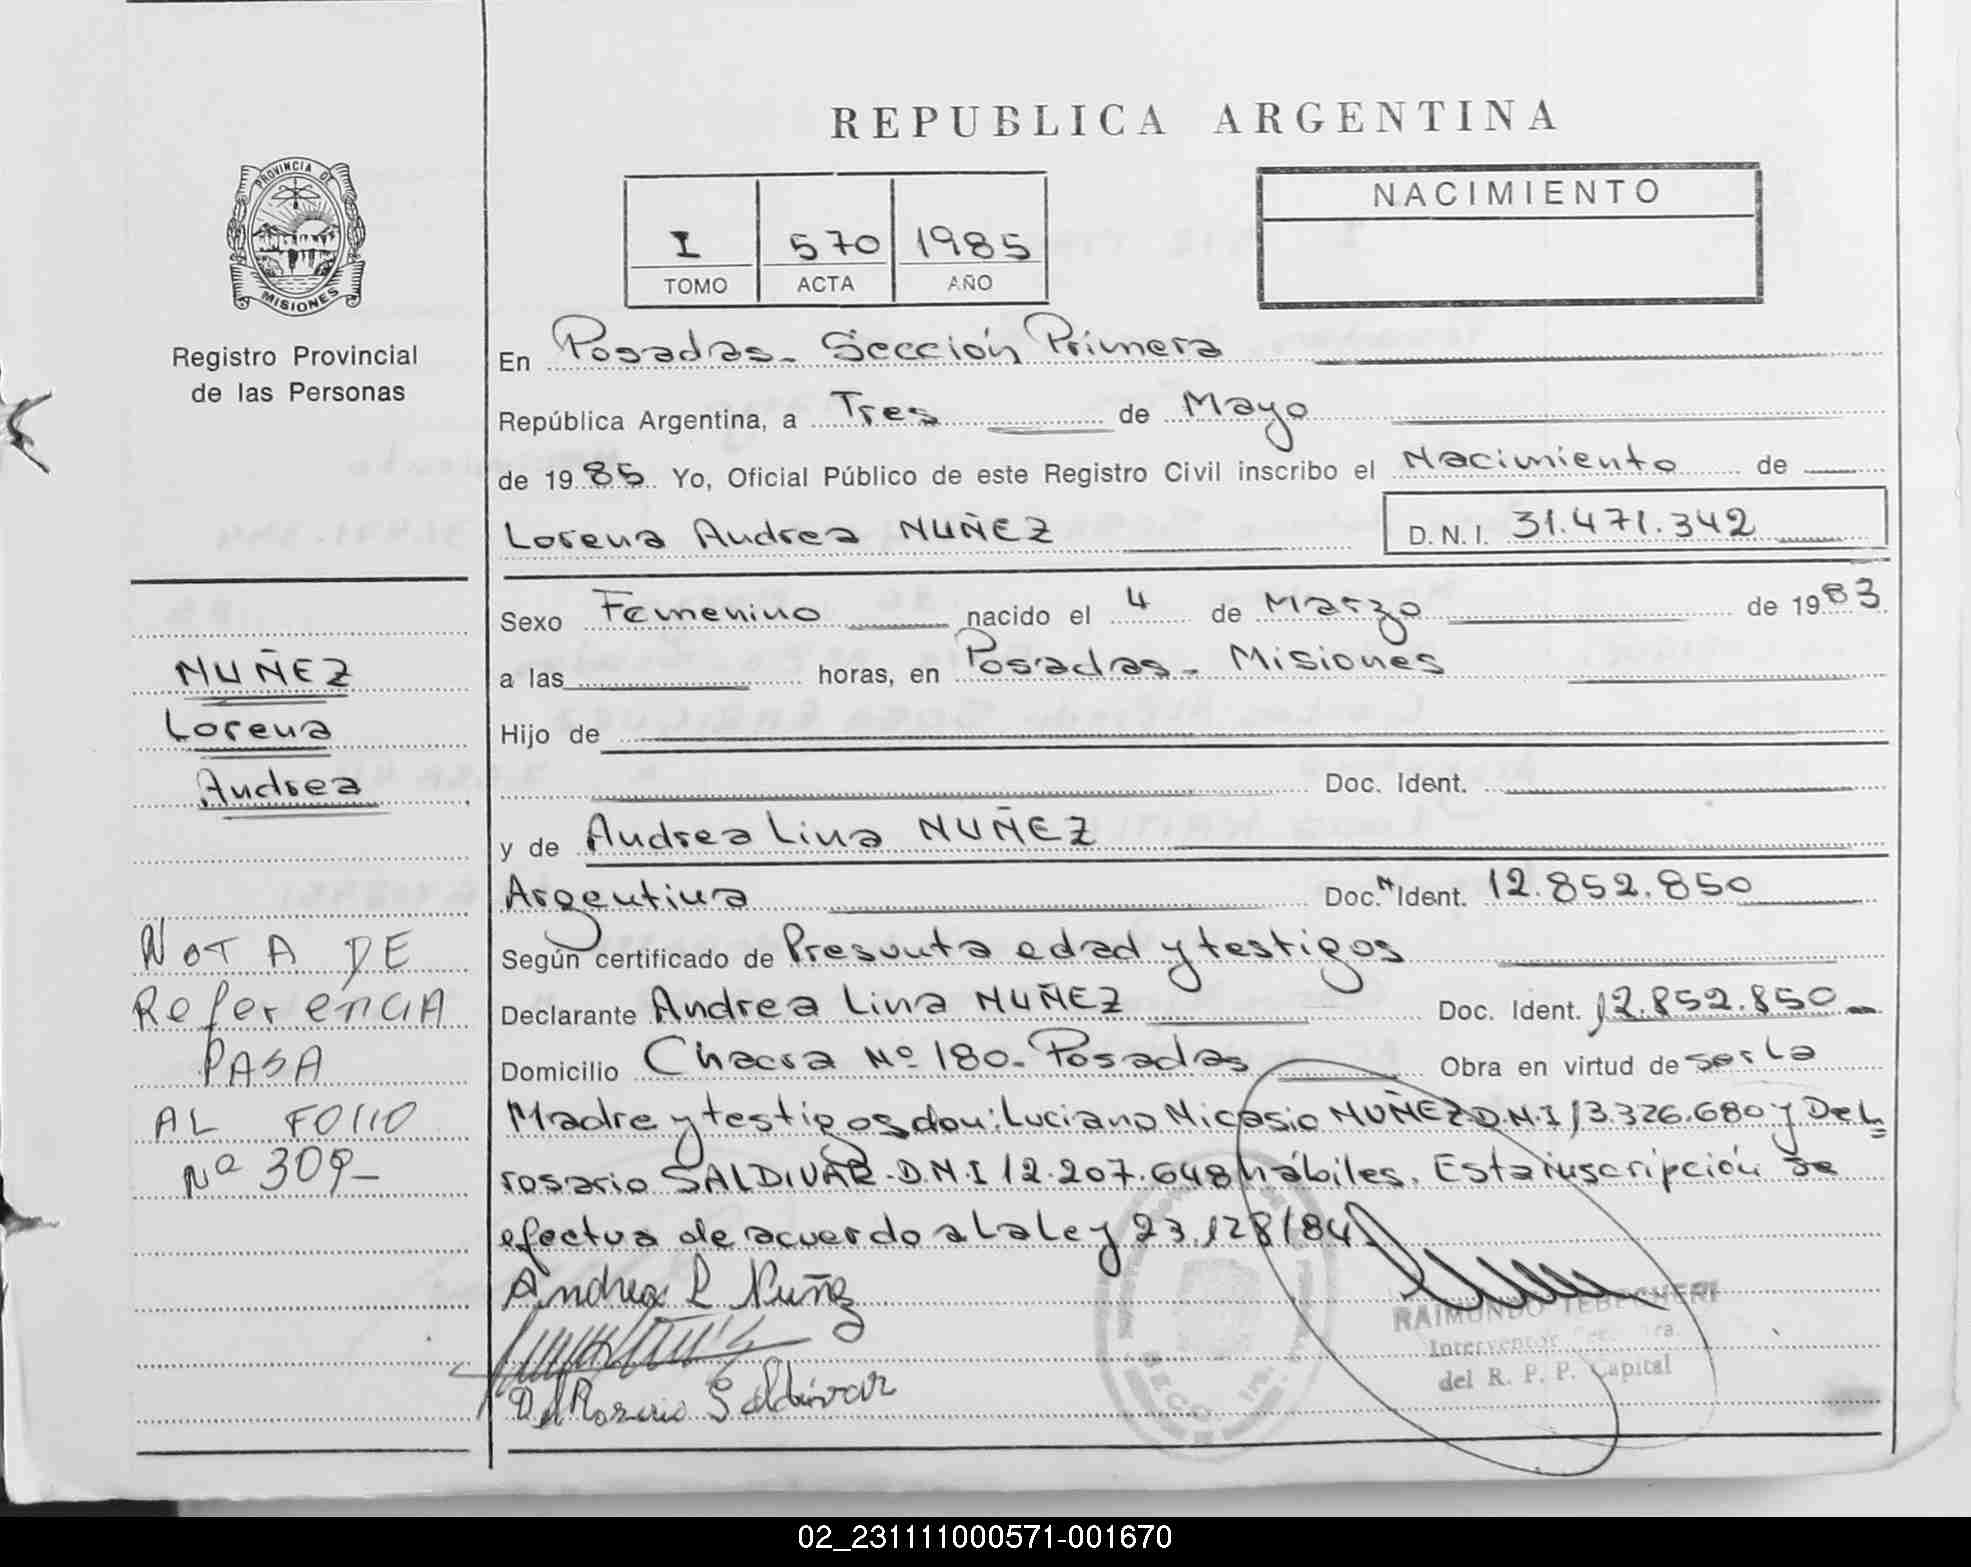 REPUBLICA ARGENTINA
PROVINCIA DE
MISIONES
Registro Provincial
de las Personas
I 570 1985
TOMO ACTA AÑO
NACIMIENTO
En Posadas - Sección Primera
República Argentina, a Tres de Mayo
de 1985 Yo, Oficial Público de este Registro Civil inscribo el Nacimiento de
Lorena Andrea NUÑEZ D.N.I. 31.471.342
Sexo Femenino nacido el 4 de Marzo de 1983
a las horas, en Posadas - Misiones
Hijo de
Doc. Ident.
y de Andrea Lina NUÑEZ
Argentina Doc. Ident. 12.852.850
Según certificado de Presunta edad y testigos
Declarante Andrea Lina NUÑEZ Doc. Ident. 12.852.850
Domicilio Chacra Nº 180 - Posadas Obra en virtud de ser la
Madre y testigos don: Luciano Nicasio NUÑEZ D.N.I 13.326.680 y Del
rosario SALDIVAR. D.N.I 12.207.648 hábiles. Esta inscripción se
efectua de acuerdo a la ley 23.128/84
Andrea L Nuñez
Del Rosario Saldivar
RAIMUNDO TEBECHERI
Interventor
del R. P. P. Capital
NUÑEZ
Lorena
Andrea
NOTA DE
Referencia
PASA
AL FOLIO
Nº 309-
02_231111000571-001670